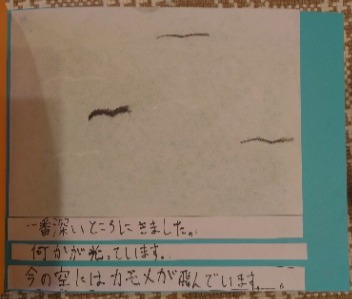 一番深いところにきました。
何かが光っています。
今の空にはカモメが飛んでいます。